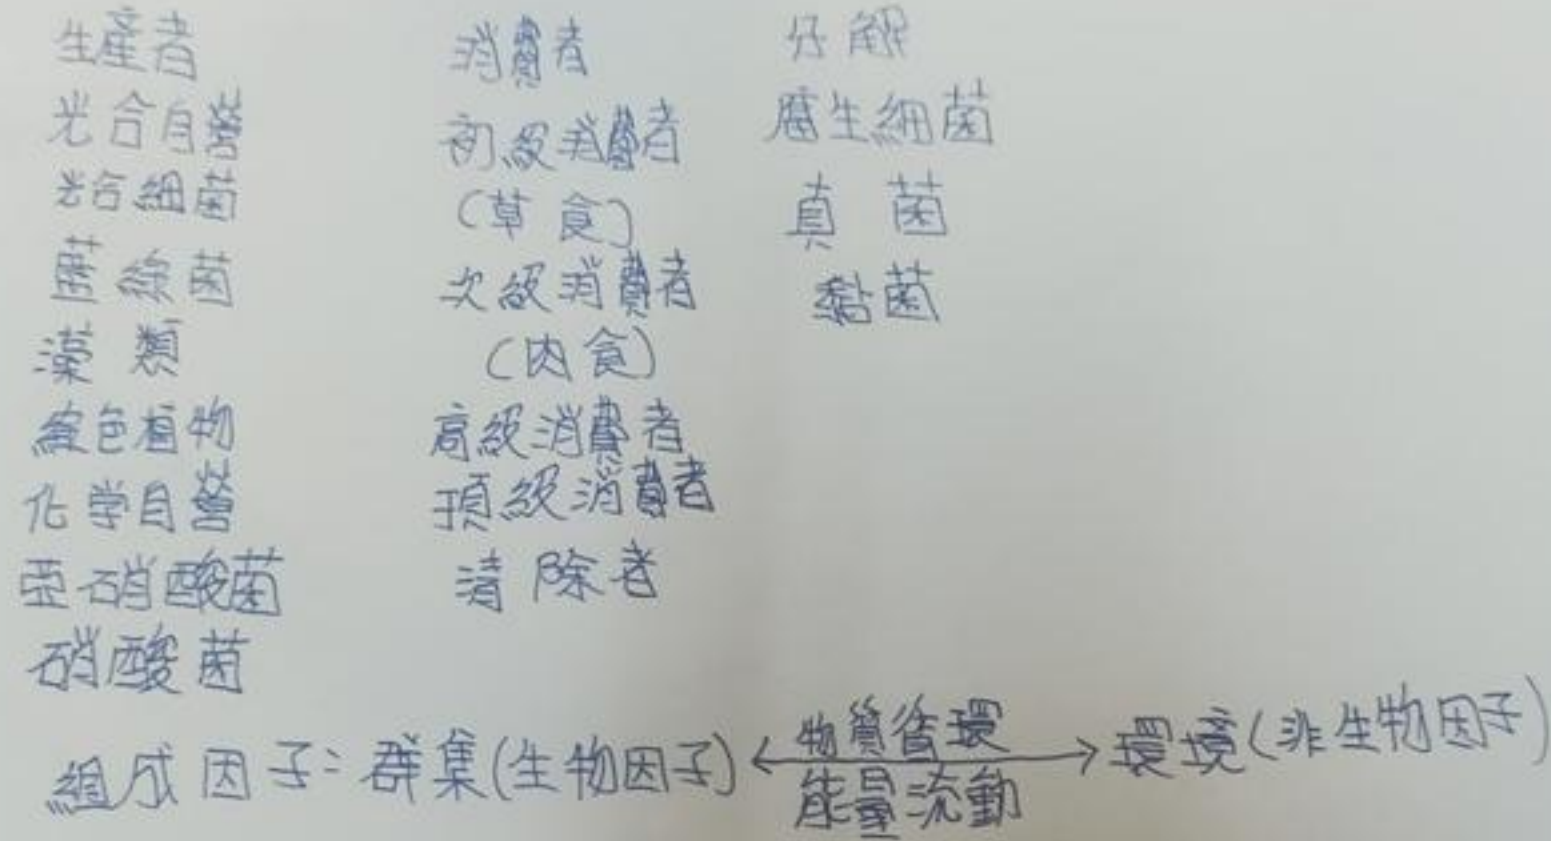 生產者
光合自營
光合細菌
藍綠菌
藻類
綠色植物
化学自營
亞硝酸菌
硝酸菌
消費者
初級消費者
(草食)
次級消費者
(肉食)
高級消費者
頂級消費者
清除者
分解
腐生細菌
真菌
黏菌
組成因子:群集(生物因子)
物質循環
能量流動
環境(非生物因子)